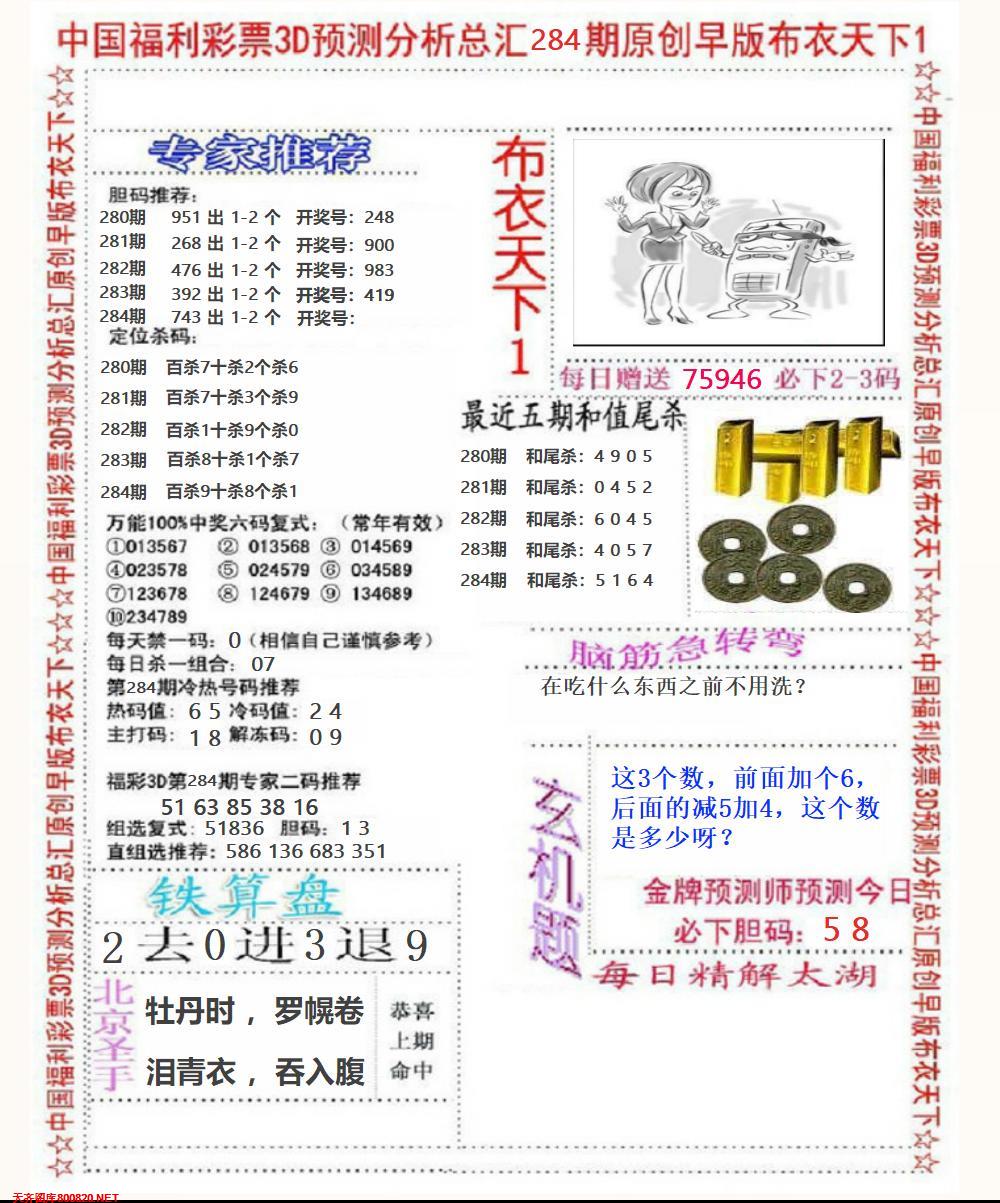 中国福利彩票3D预测分析总汇284期原创早版布衣天下1
☆☆中国福利彩票3D预测分析总汇原创早版布衣天下☆☆中国福利彩票3D预测分析总汇原创早版布衣天下☆☆
专家推荐
胆码推荐：
280期 951 出 1-2 个 开奖号：248
281期 268 出 1-2 个 开奖号：900
282期 476 出 1-2 个 开奖号：983
283期 392 出 1-2 个 开奖号：419
284期 743 出 1-2 个 开奖号：
定位杀码：
280期 百杀7十杀2个杀6
281期 百杀7十杀3个杀9
282期 百杀1十杀9个杀0
283期 百杀8十杀1个杀7
284期 百杀9十杀8个杀1
万能100%中奖六码复式：（常年有效）
①013567 ② 013568 ③ 014569
④023578 ⑤ 024579 ⑥ 034589
⑦123678 ⑧ 124679 ⑨ 134689
⑩234789
每天禁一码：0（相信自己谨慎参考）
每日杀一组合：07
第284期冷热号码推荐
热码值：6 5 冷码值：2 4
主打码：1 8 解冻码：0 9
福彩3D第284期专家二码推荐
51 63 85 38 16
组选复式：51836 胆码：1 3
直组选推荐：586 136 683 351
铁算盘
2去0进3退9
北京圣手
牡丹时，罗幌卷
泪青衣，吞入腹
恭喜
上期
命中
布衣天下1
每日赠送 75946 必下2-3码
最近五期和值尾杀
280期 和尾杀：4 9 0 5
281期 和尾杀：0 4 5 2
282期 和尾杀：6 0 4 5
283期 和尾杀：4 0 5 7
284期 和尾杀：5 1 6 4
脑筋急转弯
在吃什么东西之前不用洗？
玄机题
这3个数，前面加个6，
后面的减5加4，这个数
是多少呀？
金牌预测师预测今日
必下胆码：5 8
每日精解太湖
☆☆中国福利彩票3D预测分析总汇原创早版布衣天下☆☆中国福利彩票3D预测分析总汇原创早版布衣天下☆☆
天齐图库800820.NET